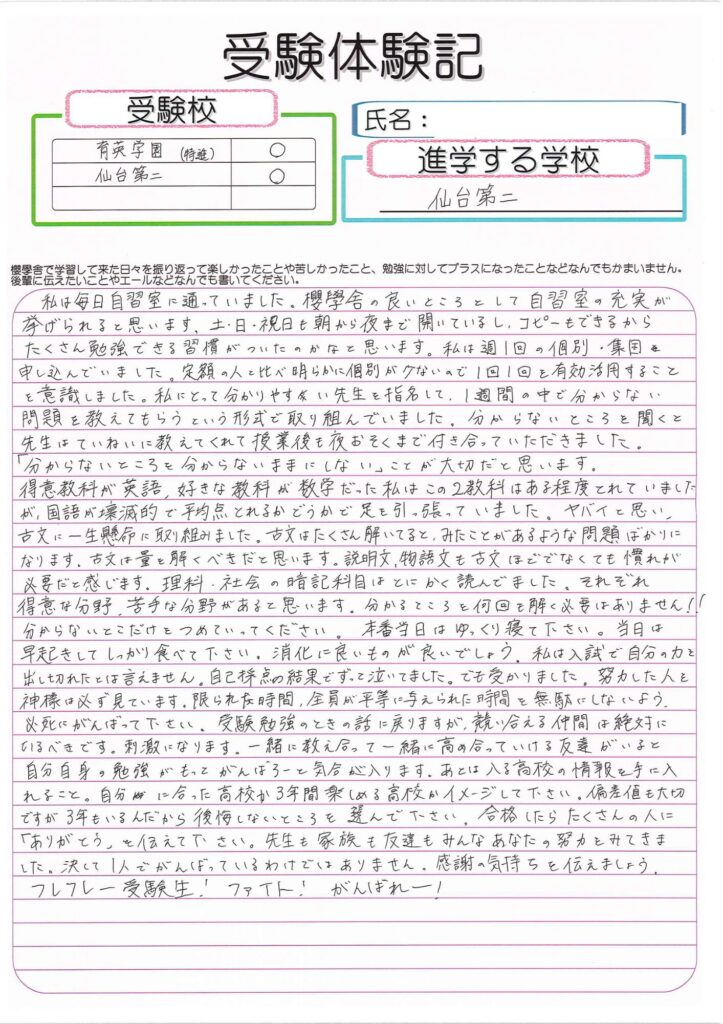 受験体験記
受験校
育英学園 (特進) ○
仙台第二 ○
氏名：
進学する学校
仙台第二
櫻學舎で学習して来た日々を振り返って楽しかったことや苦しかったこと、勉強に対してプラスになったことなどなんでもかまいません。
後輩に伝えたいことやエールなどなんでも書いてください。
私は毎日自習室に通っていました。櫻學舎の良いところとして自習室の充実が
挙げられると思います。土・日・祝日も朝から夜まで開いているし、コピーもできるから
たくさん勉強できる習慣がついたのかなと思います。私は週1回の個別・集団を
申し込んでいました。定額の人と比べ明らかに個別が少ないので1回1回を有効活用すること
を意識しました。私にとって分かりやすい先生を指名して、1週間の中で分からない
問題を教えてもらうという形式で取り組んでいました。分からないところを聞くと
先生はていねいに教えてくれて授業後も夜おそくまで付き合っていただきました。
「分からないところを分からないままにしない」ことが大切だと思います。
得意教科が英語、好きな教科が数学だった私はこの2教科はある程度とれていました
が、国語が壊滅的で平均点とれるかどうかで足を引っ張っていました。ヤバイと思い、
古文に一生懸命に取り組みました。古文はたくさん解いてると、みたことがあるような問題ばかりに
なります。古文は量を解くべきだと思います。説明文、物語文も古文ほどでなくても慣れが
必要だと感じます。理科・社会の暗記科目はとにかく読んでました。それぞれ
得意な分野、苦手な分野があると思います。分かるところを何回も解く必要はありません!!
分からないとこだけをつめていってください。 本番当日はゆっくり寝て下さい。当日は
早起きしてしっかり食べて下さい。消化に良いものが良いでしょう。私は入試で自分の力を
出し切れたとは言えません。自己採点の結果でずっと泣いてました。でも受かりました。努力した人を
神様は必ず見ています。限られた時間、全員が平等に与えられた時間を無駄にしないよう、
必死にがんばって下さい。 受験勉強のときの話に戻りますが、競い合える仲間は絶対に
いるべきです。刺激になります。一緒に教え合って一緒に高め合っていける友達がいると
自分自身の勉強がもっとがんばろーと気合が入ります。あとは入る高校の情報を手に入
れること。自分に合った高校か3年間楽しめる高校かイメージして下さい。偏差値も大切
ですが3年もいるんだから後悔しないところを選んで下さい。合格したらたくさんの人に
「ありがとう」を伝えて下さい。先生も家族も友達もみんなあなたの努力をみてきま
した。決して1人でがんばっているわけではありません。感謝の気持ちを伝えましょう。
フレフレー受験生！ ファイト！ がんばれー！